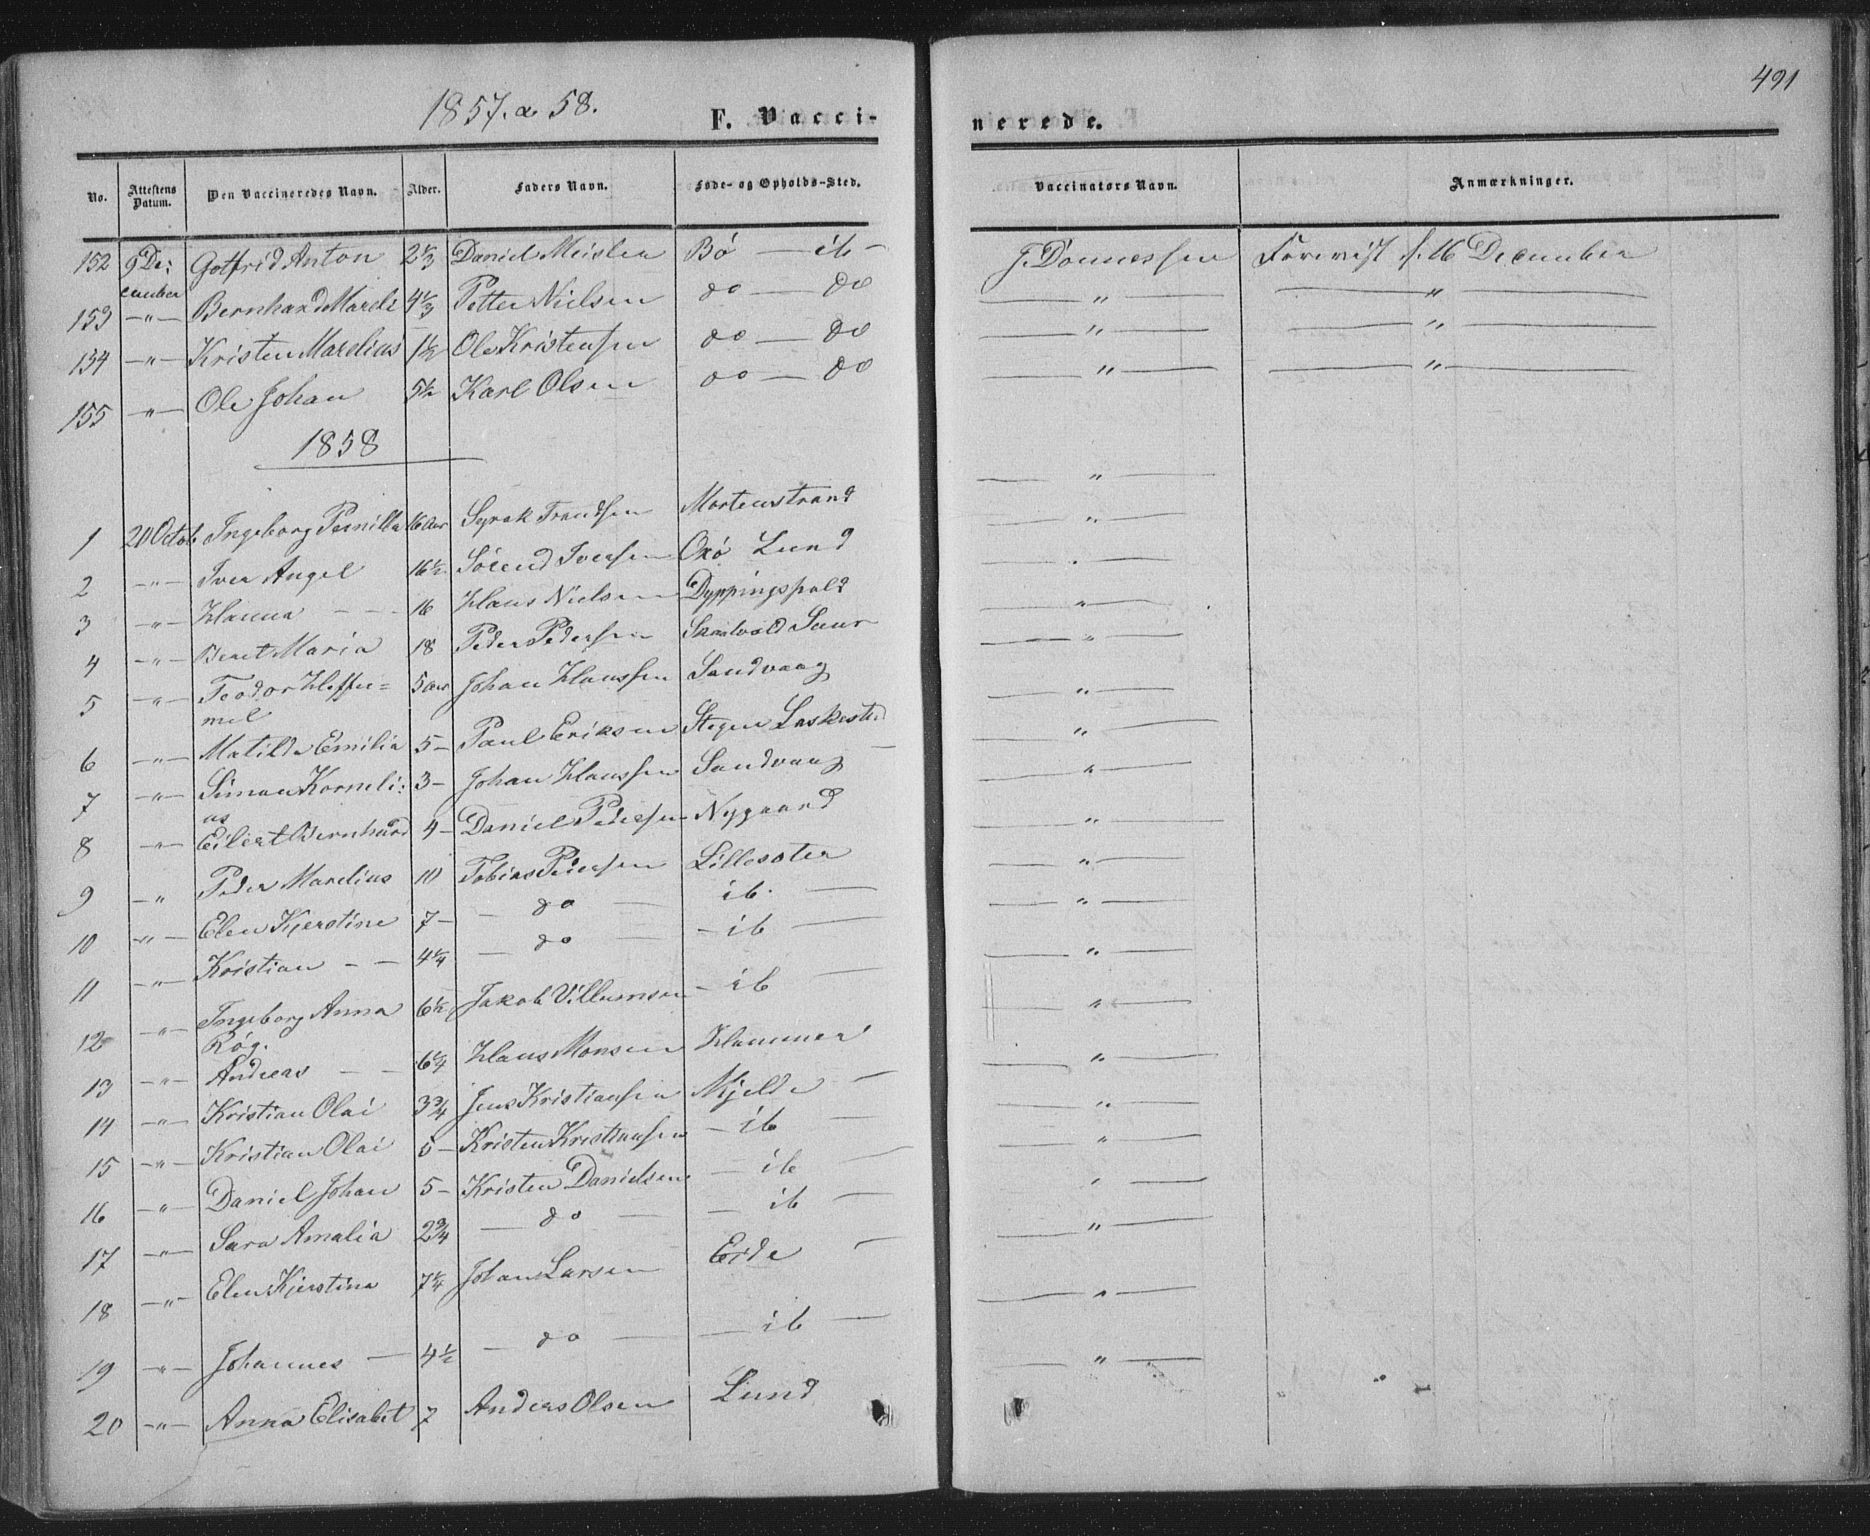 491
1857. & 58.
F. Vacci-
nerede.
No. Attestens Datum. Den Vaccineredes Navn. Alder. Faders Navn. Føde- og Opholds-Sted. Vaccinators Navn. Anmærkninger.
152 9 De: Gotfrid Anton 2 1/3 Daniel Meisler Bø — ib — J. Donnessen Forevist f. 16 December
cember
153 —"— Bernhard 4 1/3 Petter Nielsen do — do —"— —"—
154 —"— Kristen Marelius 1 1/2 Ole Kristensen do — do —"— —"—
155 —"— Ole Johan 5 1/2 Karl Olsen do — do —"— —"—
1858
1 20 Octob Ingeborg Pernilla 16 Aar Syrak Trondsen Mortenstrand —"—
2 —"— Iver Angel 16 1/2 Sørend Iversen Lund —"—
3 —"— Hanna — — 16 Hans Nielsen —"—
4 —"— Beret Maria 18 Peder Pedersen —"—
5 —"— Teodor 5 Aar Johan Hanssen Sandvaag —"—
mel
6 —"— Matilde Emilia 5 — Paul Eriksen Stegen Laskestad —"—
7 —"— Simon Korneli: 3 — Johan Hanssen Sandvaag —"—
us
8 —"— Eilert Bernhard 4 — Daniel Pedersen Nygaard —"—
9 —" Peder Marelius 10 Tobias Pedersen Lillesøter —"—
10 —"— Elen Kjerstine 7 — — do — ib. — —"—
11 —"— Kristian — — 4 1/4 — do — — ib — —"—
12 —"— Ingeborg Anna 6 1/2 Jakob Villumsen — ib — —"—
Røg.
13 —"— Andreas — — 6 1/4 Hans Monsen Hammer —"—
14 —"— Kristian Olai 3 3/4 Jens Kristiansen Mjelde — —"—
15 —"— Kristian Olai 5 — Kristen Kristiansen — ib — —"—
16 —"— Daniel Johan 5 — Kristen Danielsen — ib — —"—
17 —"— Sara Amalia 2 3/4 — do — — ib — —"—
18 —"— Elen Kjerstina 7 1/4 Johan Larsen Erde — —"—
19 —"— Johannes — 4 1/2 — do — — ib — —"—
20 —"— Anna Elisabet 7 Anders Olsen Lund